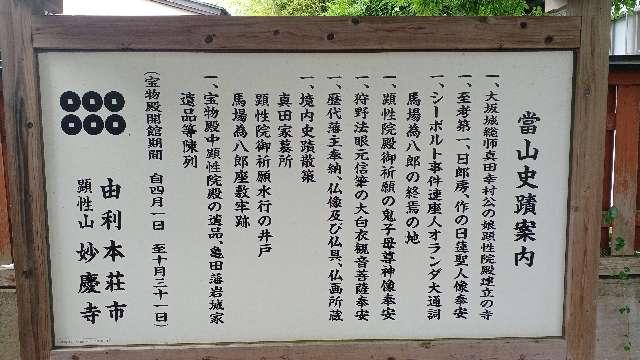 當山史蹟案内
一、大坂城総師真田幸村公の娘顕性院殿建立の寺
一、至孝第一、日郎房、作の日蓮聖人像奉安
一、シーボルト事件連座人オランダ大通詞
馬場為八郎の終焉の地
一、顕性院殿御祈願の鬼子母尊神像奉安
一、狩野法眼元信筆の大白衣観音菩薩奉安
一、歴代藩主奉納、仏像及び仏具、仏画所蔵
一、境内史蹟散策
真田家墓所
顕性院御祈願水行の井戸
馬場為八郎座敷牢跡
一、宝物殿中顕性院殿の遺品、亀田藩岩城家
遺品等陳列
(宝物殿開館期間 自四月一日 至十月三十一日)
由利本荘市
顕性山 妙慶寺